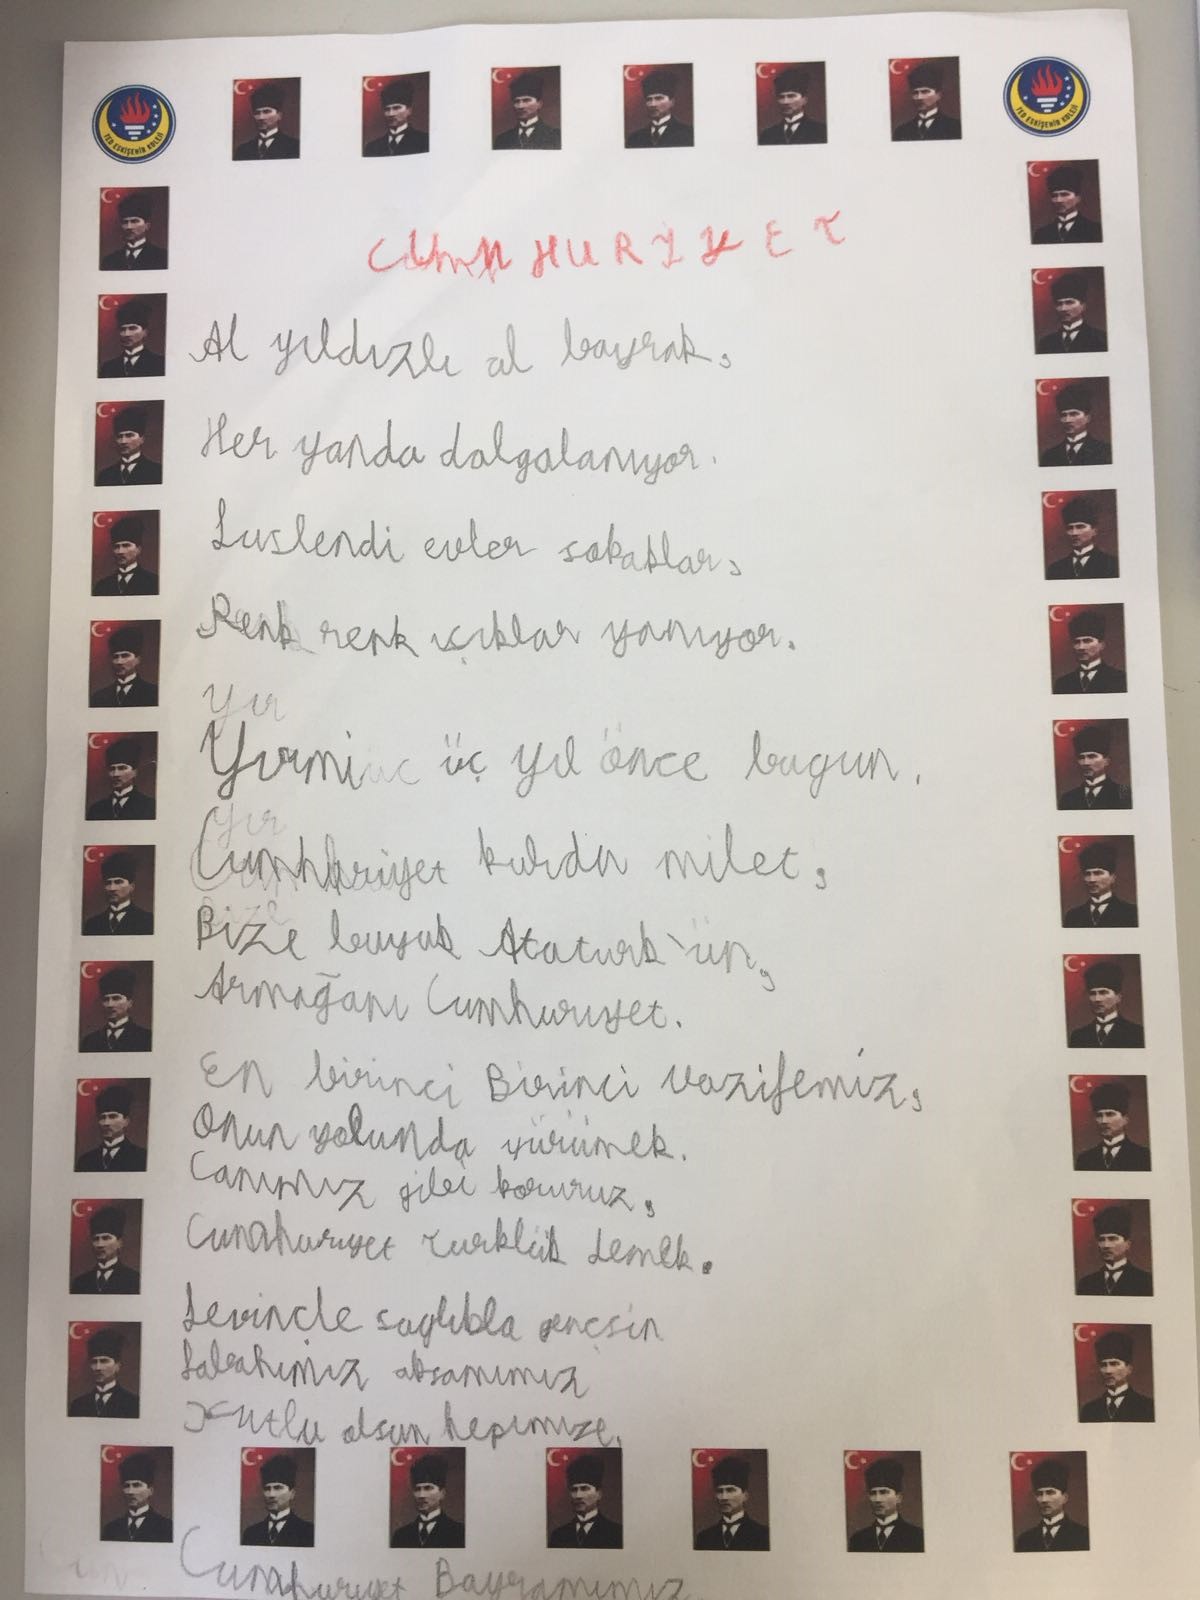 TED ESKİŞEHİR KOLEJİ
TED ESKİŞEHİR KOLEJİ
CUMHURİYET
Al yıldızlı al bayrak,
Her yanda dalgalanıyor.
Suslendi evler sokaklar,
Renk renk ışıklar yanıyor.
Yır
Yırmi üç yıl önce bugun.
Yır
Cumhuriyet kurdu milet,
Bize buyuk Ataturk'ün,
Armağanı Cumhuriyet.
En birinci Birinci vazifemiz,
Onun yolunda yürümek.
Canımız gibi koruruz,
Cumhuriyet Turklük demek.
Sevincle saglıkla gençsin
Sabahımız aksamımız
Kutlu olsun hepimize,
Cumhuriyet Bayramımız